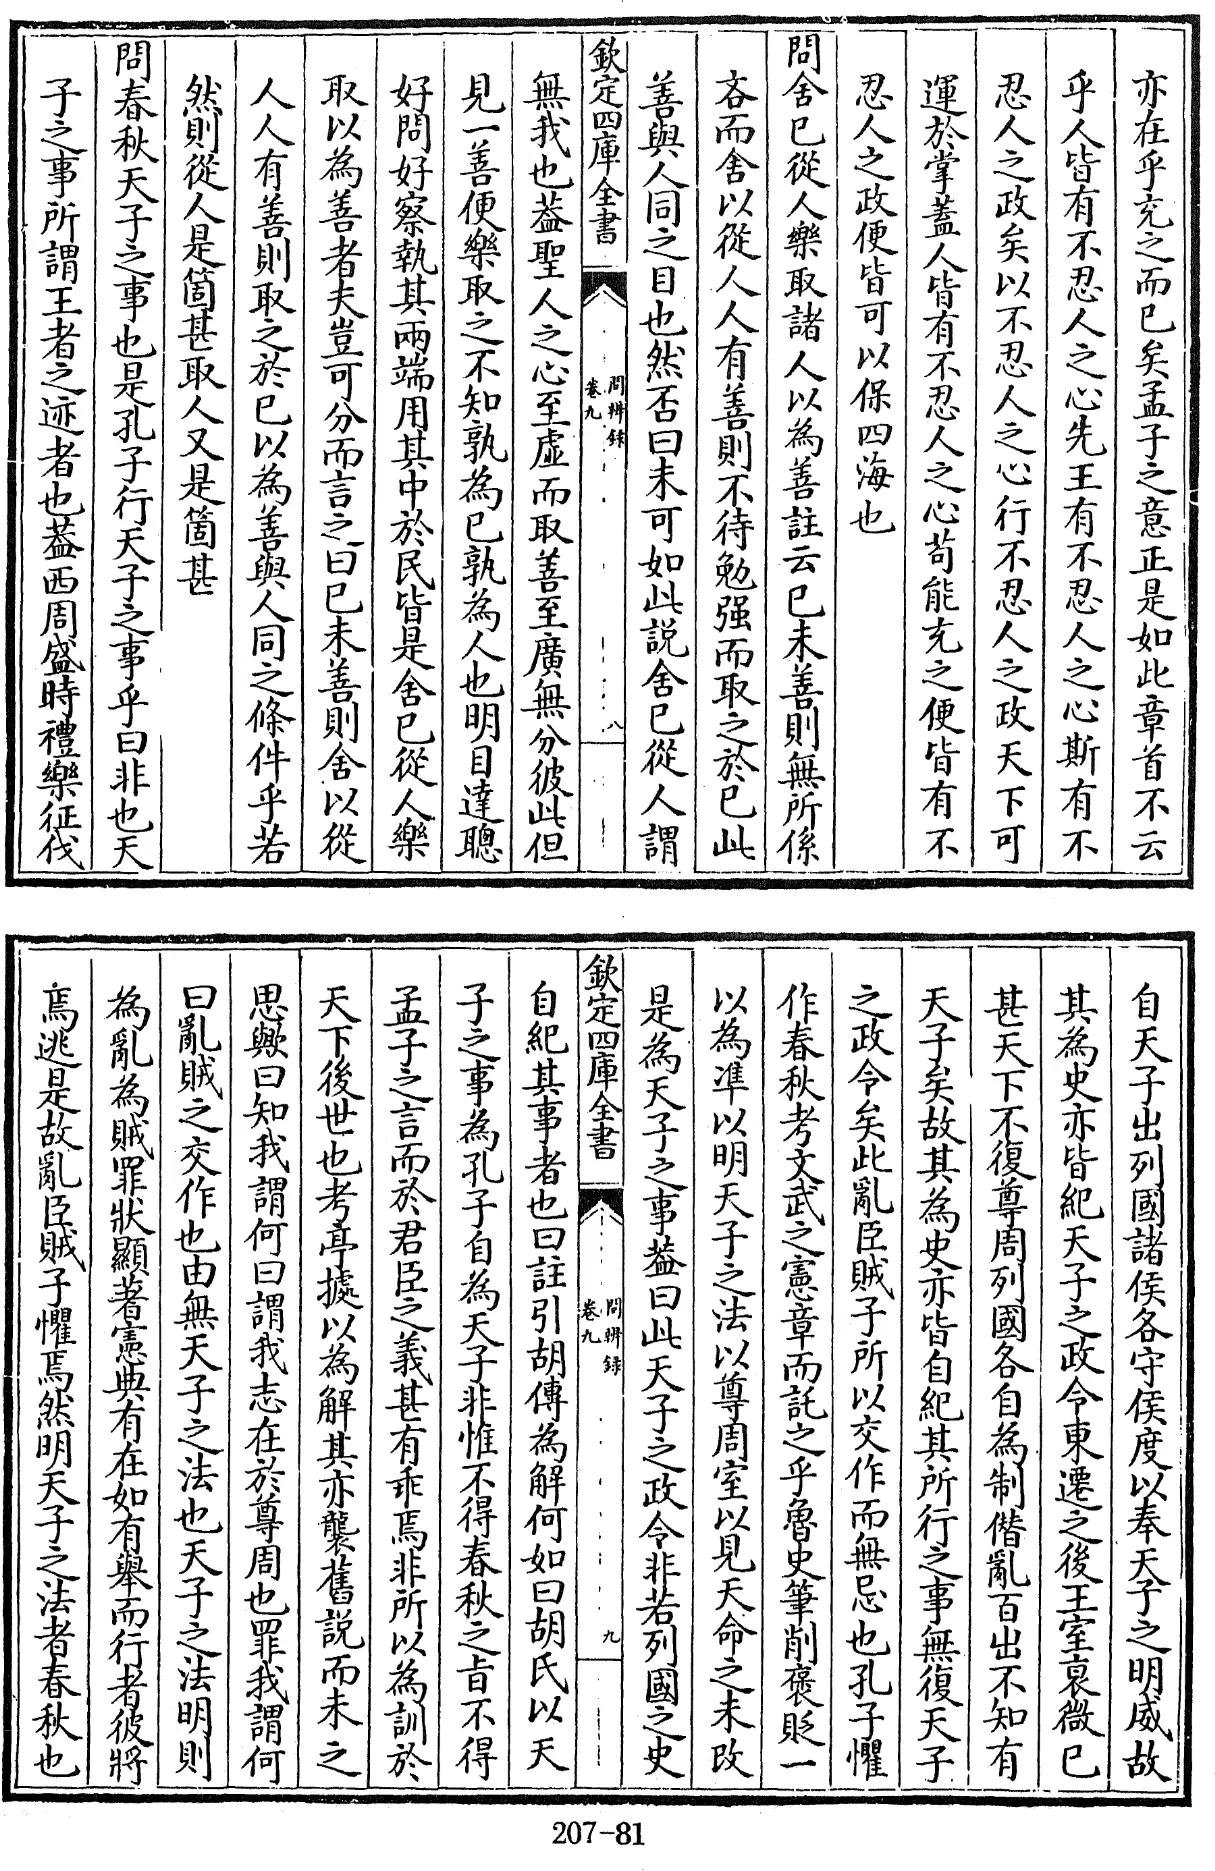 亦在乎充之而已矣孟子之意正是如此章首不云
乎人皆有不忍人之心先王有不忍人之心斯有不
忍人之政矣以不忍人之心行不忍人之政天下可
運於掌蓋人皆有不忍人之心苟能充之便皆有不
忍人之政便皆可以保四海也
問舍已從人樂取諸人以為善註云已未善則無所係
吝而舍以從人人有善則不待勉强而取之於已此
善與人同之目也然否曰未可如此説舍已從人謂
欽定四庫全書
問辨録
卷九
八
無我也葢聖人之心至虛而取善至廣無分彼此但
見一善便樂取之不知孰為已孰為人也明目達聰
好問好察執其兩端用其中於民皆是舍已從人樂
取以為善者夫豈可分而言之曰已未善則舍以從
人人有善則取之於已以為善與人同之條件乎若
然則從人是箇甚取人又是箇甚
問春秋天子之事也是孔子行天子之事乎曰非也天
子之事所謂王者之迹者也葢西周盛時禮樂征伐
自天子出列國諸侯各守侯度以奉天子之明威故
其為史亦皆紀天子之政令東遷之後王室衰微已
甚天下不復尊周列國各自為制僣亂百出不知有
天子矣故其為史亦皆自紀其所行之事無復天子
之政令矣此亂臣賊子所以交作而無忌也孔子懼
作春秋考文武之憲章而託之乎魯史筆削褒貶一
以為凖以明天子之法以尊周室以見天命之未改
是為天子之事葢曰此天子之政令非若列國之史
欽定四庫全書
問辨録
卷九
九
自紀其事者也曰註引胡傳為解何如曰胡氏以天
子之事為孔子自為天子非惟不得春秋之旨不得
孟子之言而於君臣之義甚有乖焉非所以為訓於
天下後世也考亭據以為解其亦襲舊説而未之
思歟曰知我謂何曰謂我志在於尊周也罪我謂何
曰亂賊之交作也由無天子之法也天子之法明則
為亂為賊罪狀顯著憲典有在如有舉而行者彼將
焉逃是故亂臣賊子懼焉然明天子之法者春秋也
207-81